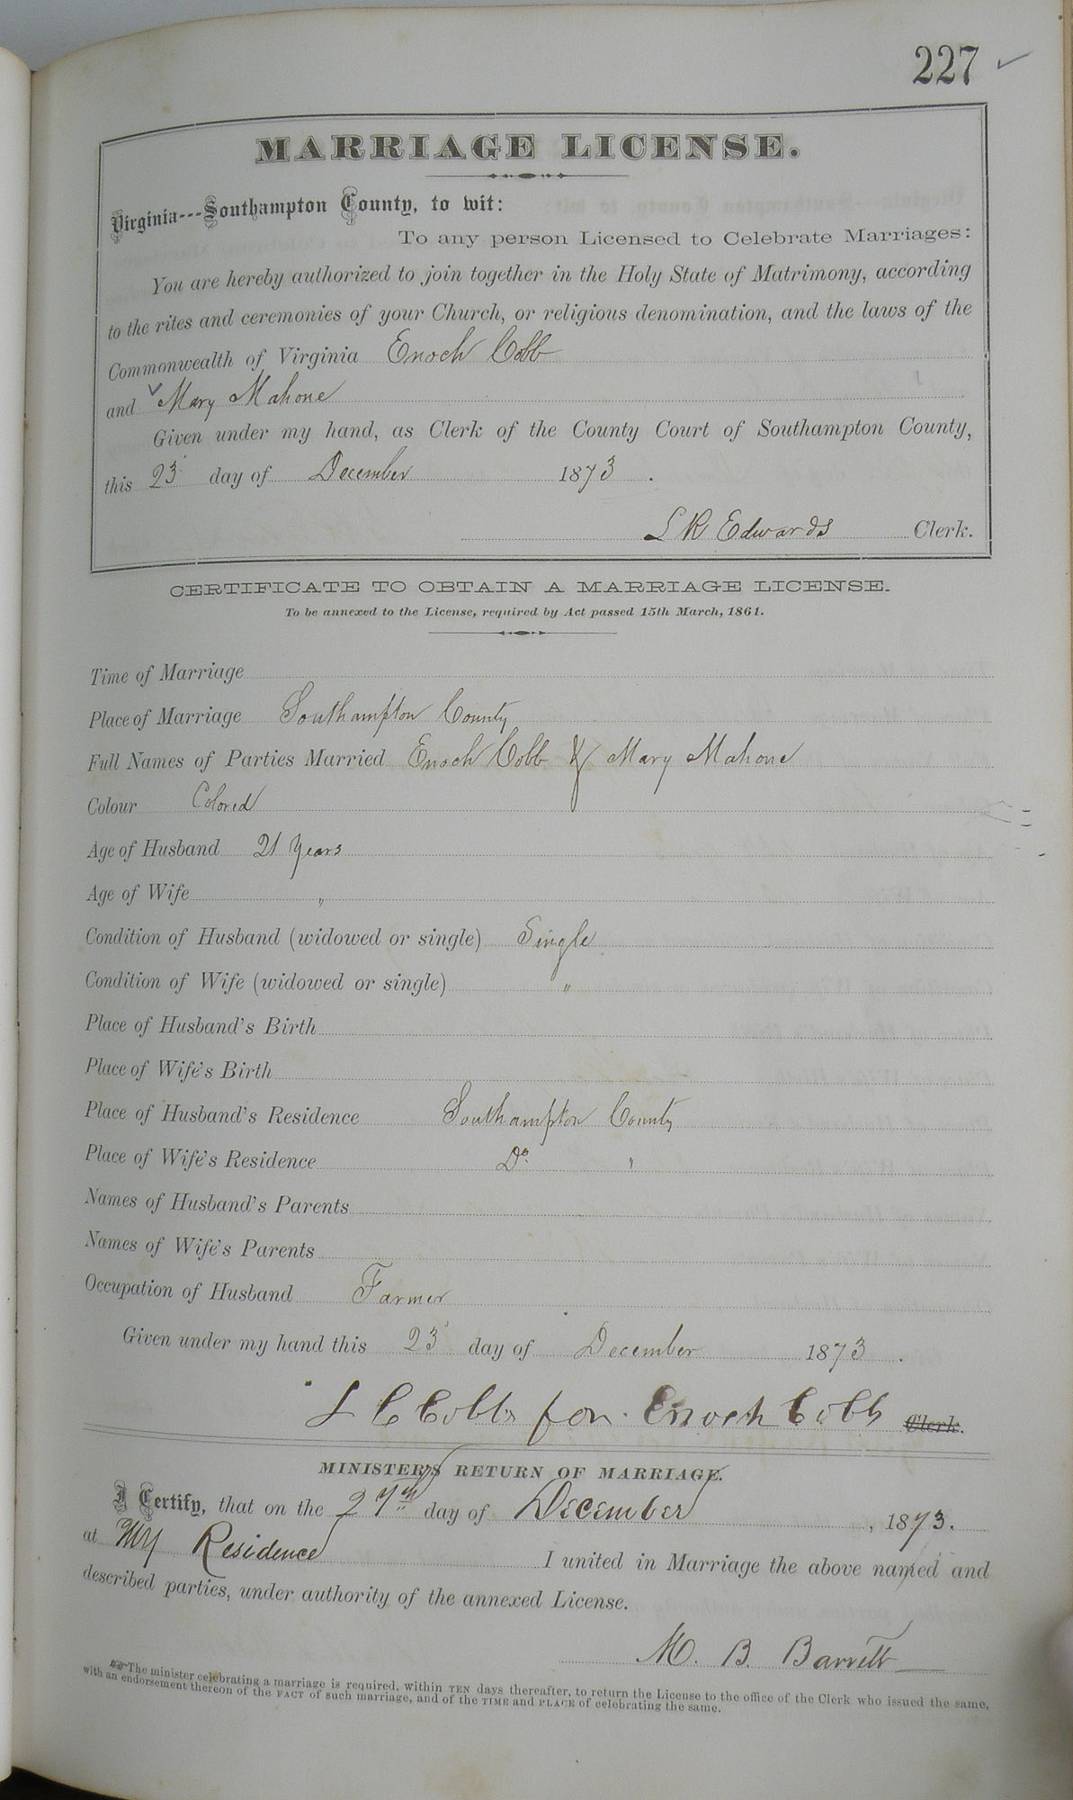 227 ✓
MARRIAGE LICENSE.
Virginia---Southampton County, to wit:
To any person Licensed to Celebrate Marriages:
You are hereby authorized to join together in the Holy State of Matrimony, according
to the rites and ceremonies of your Church, or religious denomination, and the laws of the
Commonwealth of Virginia Enoch Cobb
and ✓ Mary Mahone
Given under my hand, as Clerk of the County Court of Southampton County,
this 23 day of December 1873.
L R Edwards Clerk.
CERTIFICATE TO OBTAIN A MARRIAGE LICENSE.
To be annexed to the License, required by Act passed 15th March, 1861.
Time of Marriage
Place of Marriage Southampton County
Full Names of Parties Married Enoch Cobb & Mary Mahone
Colour Colored
Age of Husband 21 Years
Age of Wife "
Condition of Husband (widowed or single) Single
Condition of Wife (widowed or single) "
Place of Husband's Birth
Place of Wife's Birth
Place of Husband's Residence Southampton County
Place of Wife's Residence Do "
Names of Husband's Parents
Names of Wife's Parents
Occupation of Husband Farmer
Given under my hand this 23 day of December 1873.
L C Cobbs for Enoch Cobb Clerk.
MINISTER'S RETURN OF MARRIAGE.
I Certify, that on the 27th day of December, 1873.
at My Residence I united in Marriage the above named and
described parties, under authority of the annexed License.
M. B. Barrett
The minister celebrating a marriage is required, within TEN days thereafter, to return the License to the office of the Clerk who issued the same,
with an endorsement thereon of the FACT of such marriage, and of the TIME and PLACE of celebrating the same.